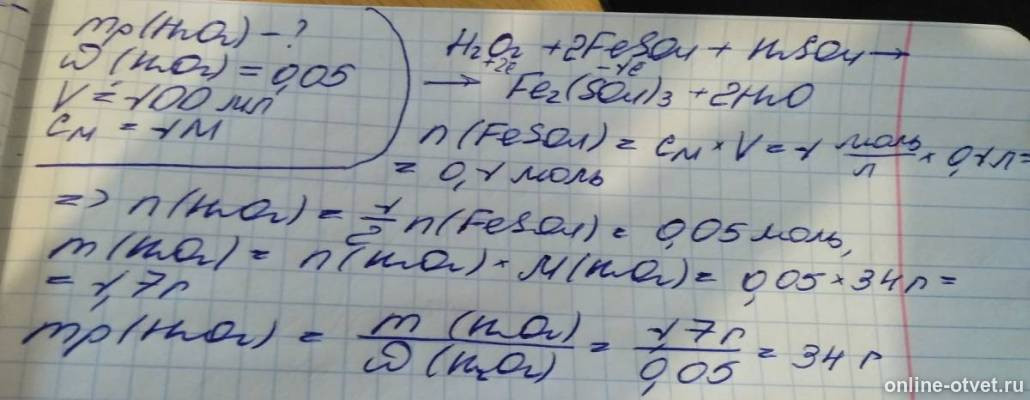 mр(H₂O₂) - ?
ω(H₂O₂) = 0,05
V = 100 мл
Cм = 1М
H₂O₂ + 2FeSO₄ + H₂SO₄ →
+2e -1e
→ Fe₂(SO₄)₃ + 2H₂O
n(FeSO₄) = Cм × V = 1 моль/л × 0,1л =
= 0,1 моль
=> n(H₂O₂) = 1/2 n(FeSO₄) = 0,05 моль,
m(H₂O₂) = n(H₂O₂) × M(H₂O₂) = 0,05 × 34 г =
= 1,7г
mр(H₂O₂) = m(H₂O₂)/ω(H₂O₂) = 1,7г/0,05 = 34 г
online-otvet.ru